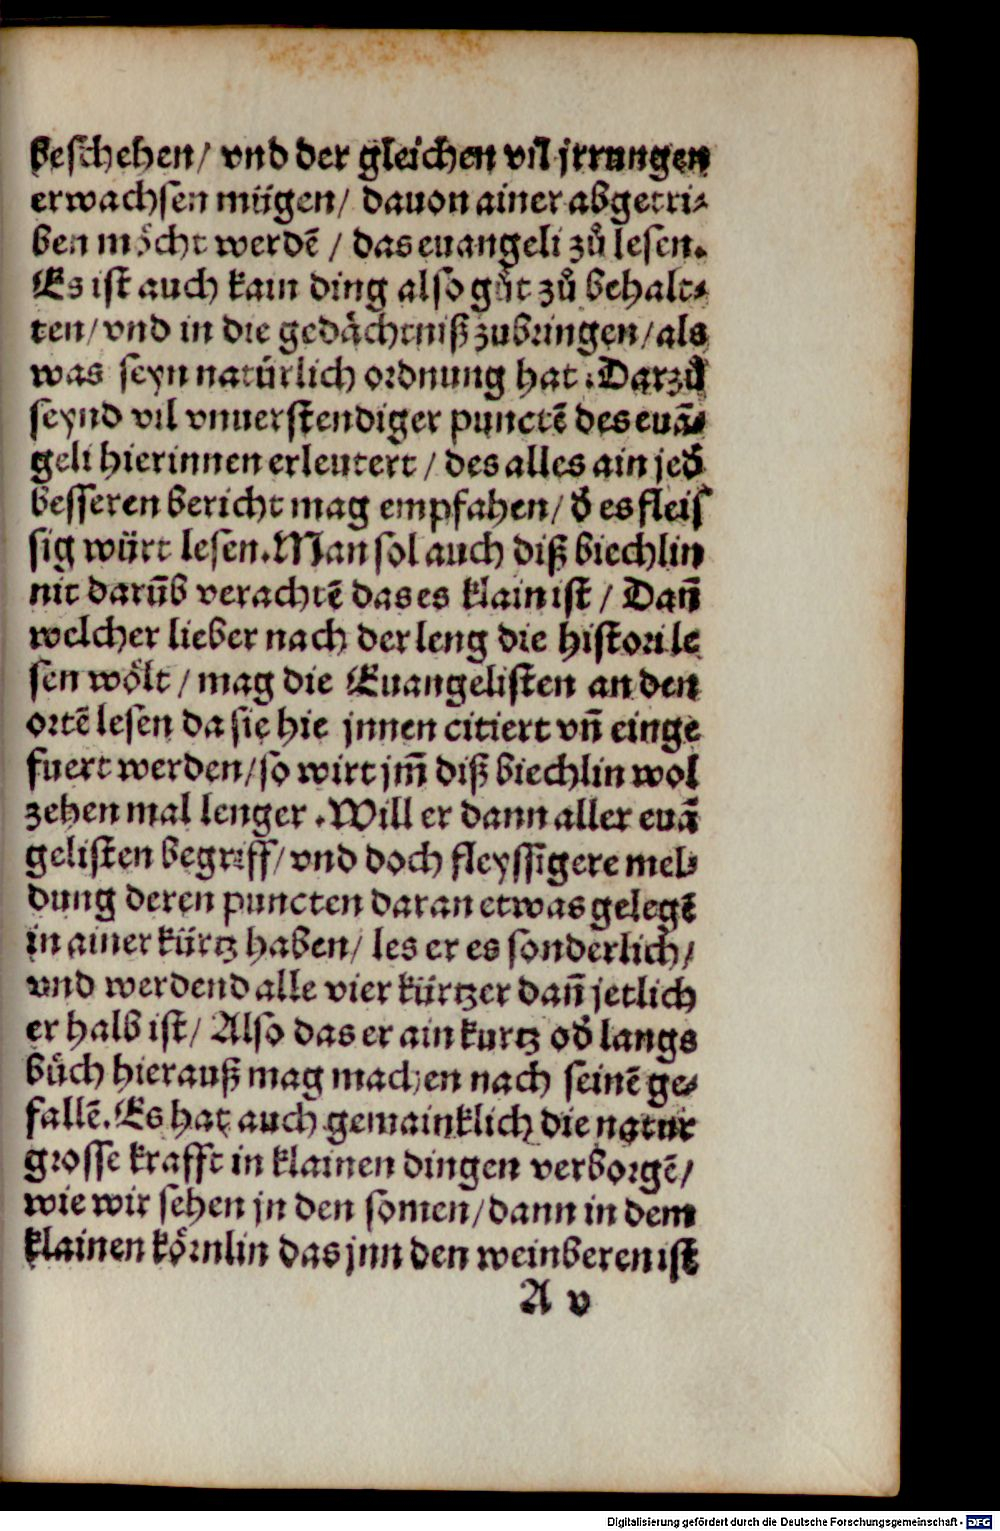 beschehen/ vnd der gleichen vil jrrungen
erwachsen mügen/ dauon ainer abgetri⸗
ben möcht werdē / das euangeli zů lesen.
Es ist auch kain ding also gůt zů behalt⸗
ten/vnd in die gedächtniß zubringen/als
was seyn natürlich ordnung hat. Darzů
seynd vil vnuerstendiger punctē des euā⸗
geli hierinnen erleutert / des alles ain jed̕
besseren bericht mag empfahen/ d̕ es fleis
sig würt lesen. Man sol auch diß biechlin
nit darūb verachtē das es klain ist / Dañ
welcher lieber nach der leng die histori le
sen wölt / mag die Euangelisten an den
ortē lesen da sie hie jnnen citiert vñ einge
fuert werden/so wirt jm̄ diß biechlin wol
zehen mal lenger. Will er dann aller euā
gelisten begriff/vnd doch fleyssigere mel⸗
dung deren puncten daran etwas gelegē
in ainer kürtz haben/ les er es sonderlich/
vnd werdend alle vier kürtzer dañ jetlich
er halb ist/ Also das er ain kurtz od̕ langs
bůch hierauß mag machen nach seinē ge⸗
fallē. Es hat auch gemainklich die natur
grosse krafft in klainen dingen verborgē/
wie wir sehen jn den somen/dann in dem
klainen körnlin das jnn den weinberen ist
A v
Digitalisierung gefördert durch die Deutsche Forschungsgemeinschaft - DFG